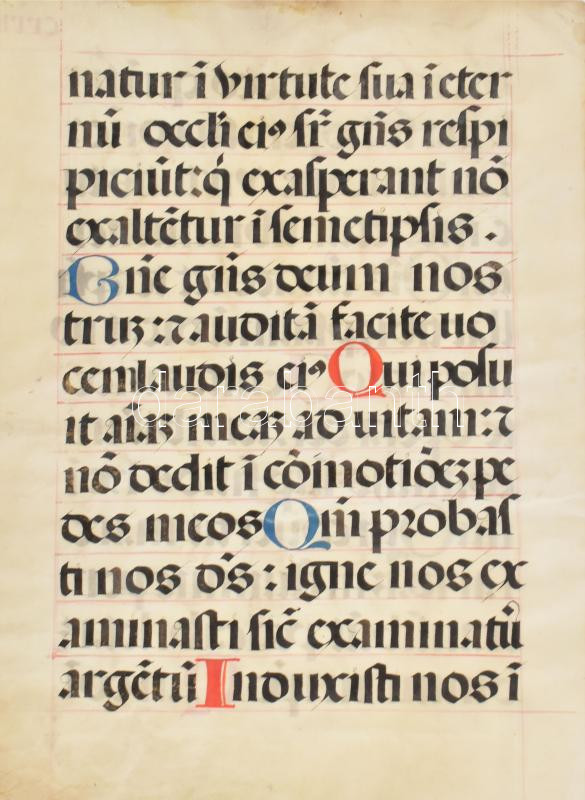 natur ī virtute sua ī eter
nū occli eiꝰ sr̄ gn̄s respi
piciūt: q́ exasperant nō
exaltētur ī semetipsis.
Bn̄e gn̄s deum nos
truꝫ: ⁊ auditā facite uo
cem laudis eiꝰ Qui posu
it aīaꝫ meaꝫ ad uitam: ⁊
nō dedit ī cōmotiōeꝫ pe
des meos Qm̄ probas
ti nos ds̄: igne nos ex
aminasti sic̄ examinatū
argētū Induxisti nos ī
darabanth